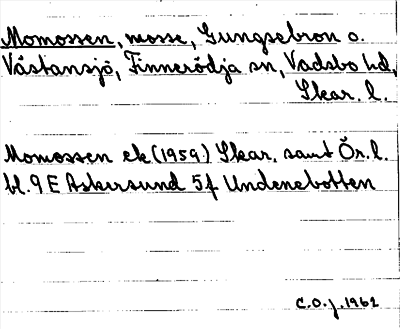 Momossen, mosse, Gungsebron o.
Västansjö, Finnerödja sn, Vadsbo hd,
Skar. l.
Momossen ek (1959) Skar. samt Ör. l.
bl. 9 E Askersund 5f Undenebotten
C.O.J. 1962